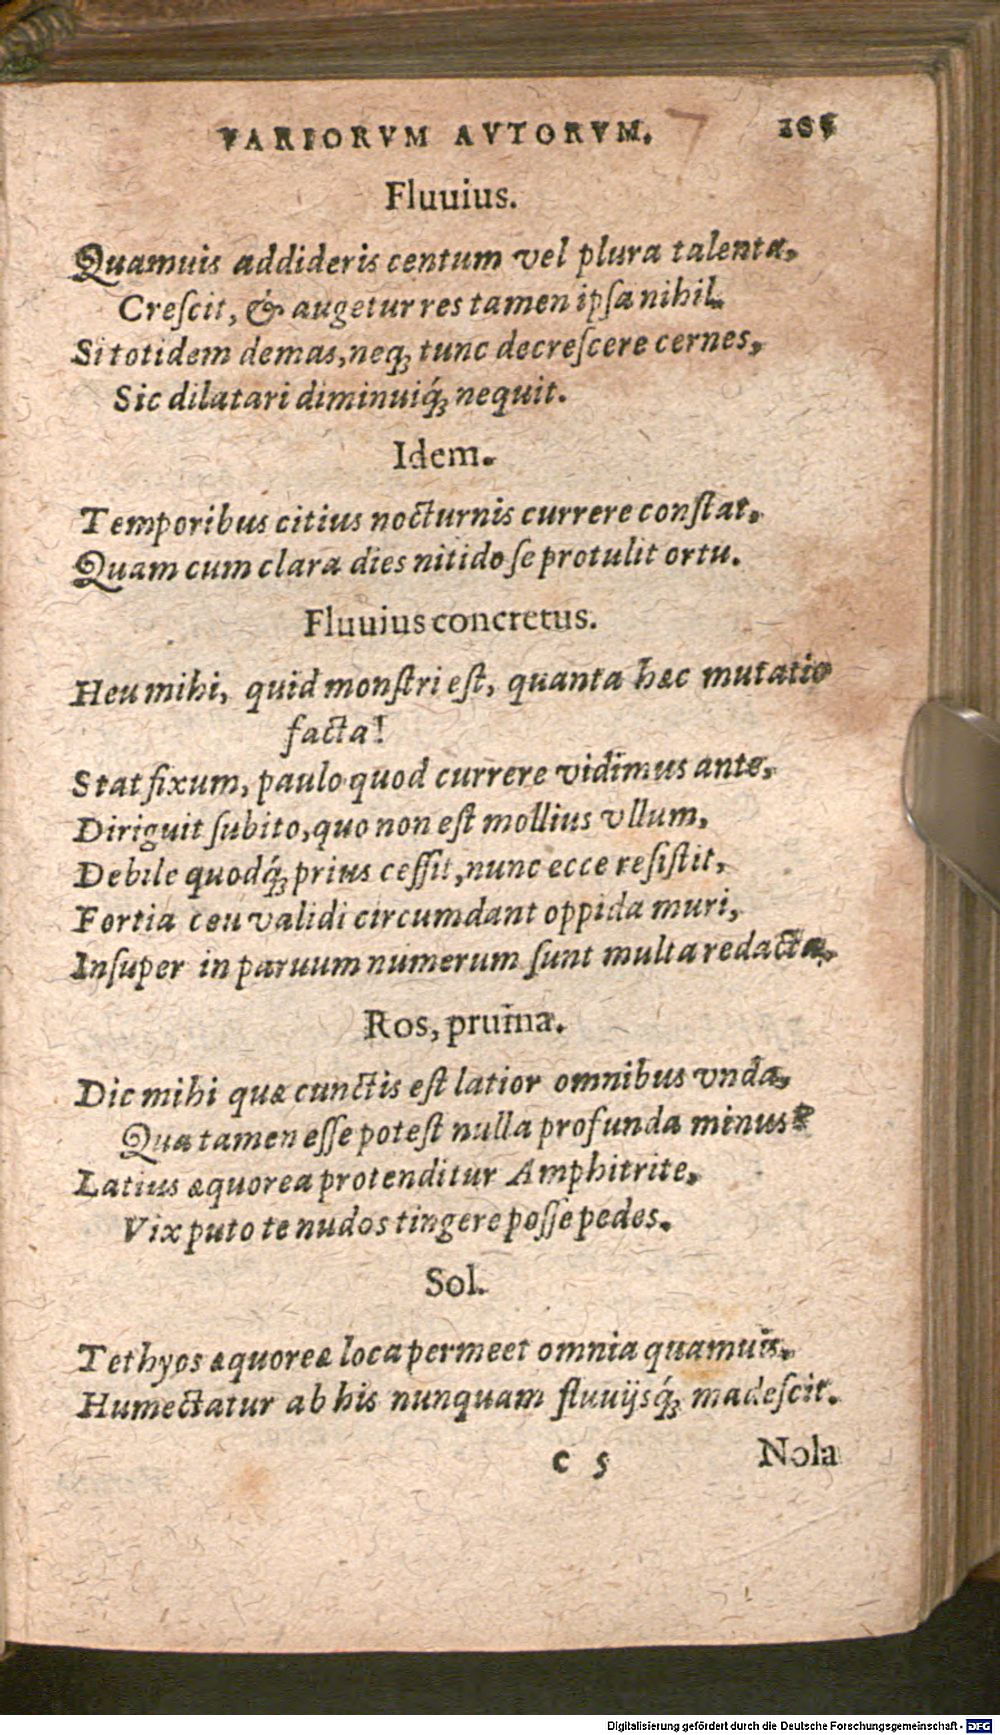 VARIORVM AVTORVM. 105
Fluuius.
Quamuis addideris centum vel plura talenta,
Creſcit, & augetur res tamen ipſa nihil.
Si totidem demas, neq; tunc decreſcere cernes,
Sic dilatari diminuiq́; nequit.
Idem.
Temporibus citius nocturnis currere conſtat,
Quam cum clara dies nitido ſe protulit ortu.
Fluuius concretus.
Heu mihi, quid monſtri eſt, quanta hæc mutatio
facta!
Stat fixum, paulo quod currere vidimus ante,
Diriguit ſubito, quo non eſt mollius vllum,
Debile quodq́; prius ceſſit, nunc ecce reſiſtit,
Fortia ceu validi circumdant oppida muri,
Inſuper in paruum numerum ſunt multa redacta,
Ros, pruina.
Dic mihi quæ cunctis eſt latior omnibus vnda,
Qua tamen eſſe poteſt nulla profunda minus?
Latius æquorea protenditur Amphitrite,
Vix puto te nudos tingere poſſe pedes.
Sol.
Tethyos æquoreæ loca permeet omnia quamuis,
Humectatur ab his nunquam fluuijsq́; madeſcit.
c 5 Nola
Digitalisierung gefördert durch die Deutsche Forschungsgemeinschaft - DFG